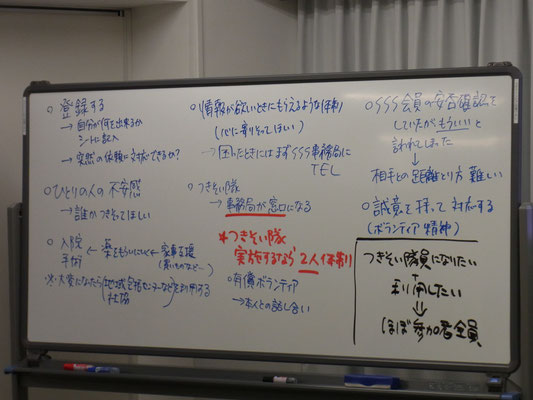 ○ 登録する
→ 自分が何を出来るか
シートに記入
→ 突然の依頼に対応できるか?
○ ひとりの人の不安感
→ 誰かつきそってほしい
○ 入院 ← 薬をもらいにいく ← 家事支援
手術 (買いものなど…)
※大変になったら(地域包括センターなど)を利用する
社協
○ 情報が欲しいときにもらえるような体制
(心に寄りそってほしい)
→ 困ったときにはまずSSS事務局に
TEL
○ つきそい隊
→ 事務局が窓口になる
*つきそい隊
実施するなら2人体制
○ 有償ボランティア
→ 本人との話し合い
○ SSS会員の安否確認を
していたがもういいと
言われしまった
→ 相手との距離とり方 難しい
○ 誠意を持って対応する
(ボランティア精神)
つきそい隊員になりたい
利用したい
↓
ほぼ参加者全員